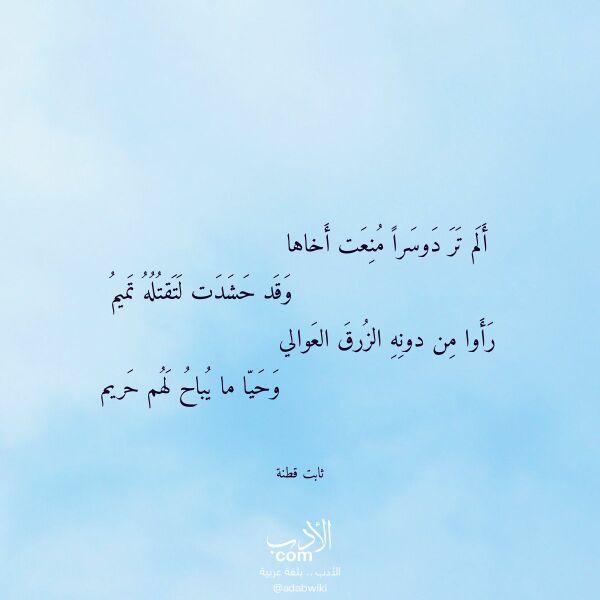 أَلَم تَرَ دَوسَراً مُنِعَت أَخاها
وَقَد حَشَدَت لَتَقتُلُهُ تَميمُ
رَأَوا مِن دونِهِ الزُرقَ العَوالي
وَحَيّا ما يُباحُ لَهُم حَريم
ثابت قطنة
الأدب
com
الأدب .. بلغة عربية
@adabwiki